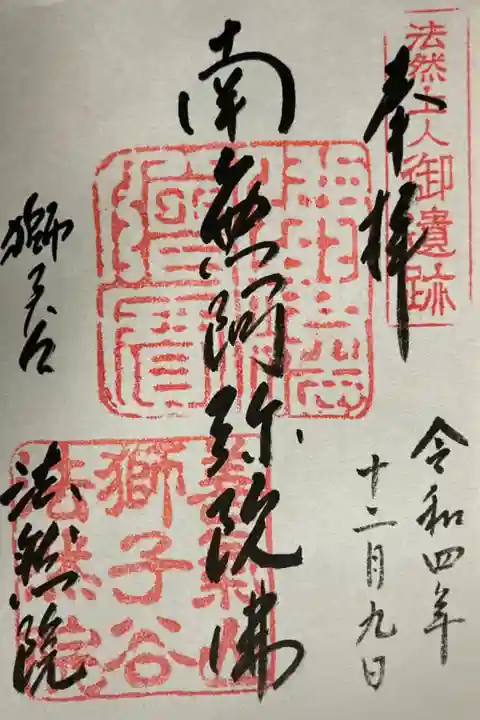 法然上人御遺跡
奉拝
令和四年
十二月九日
南無阿弥陀佛
獅子谷
法然院
獅子谷
法然院